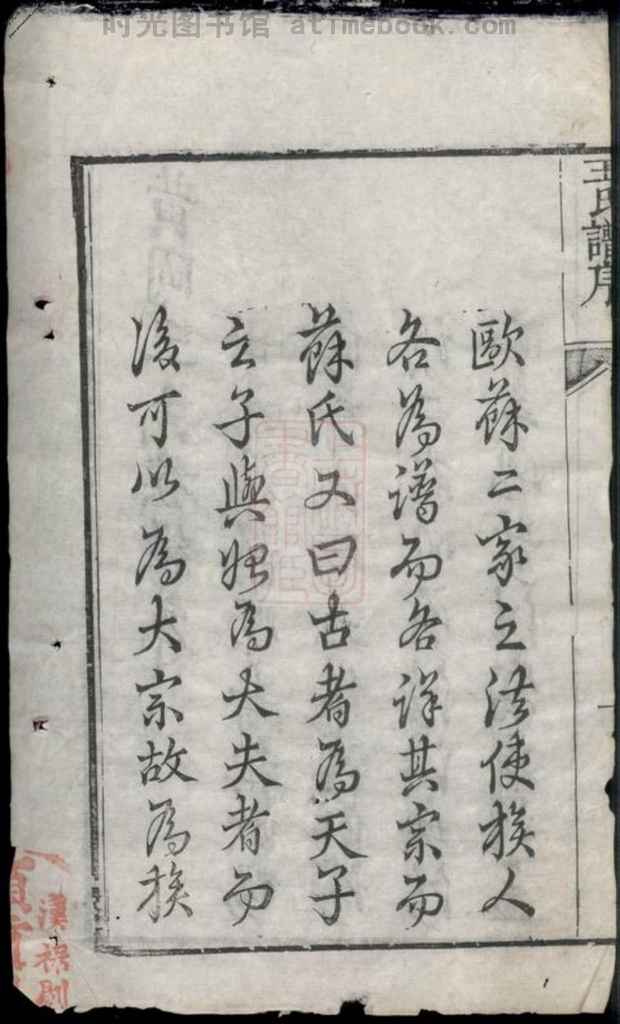 时光图书馆 atimebook.com
王氏譜序
歐蘇二家立法使族人
各為譜而各詳其宗而
蘇氏又曰古者為天子
之子與始為大夫者而
後可以為大宗故為族